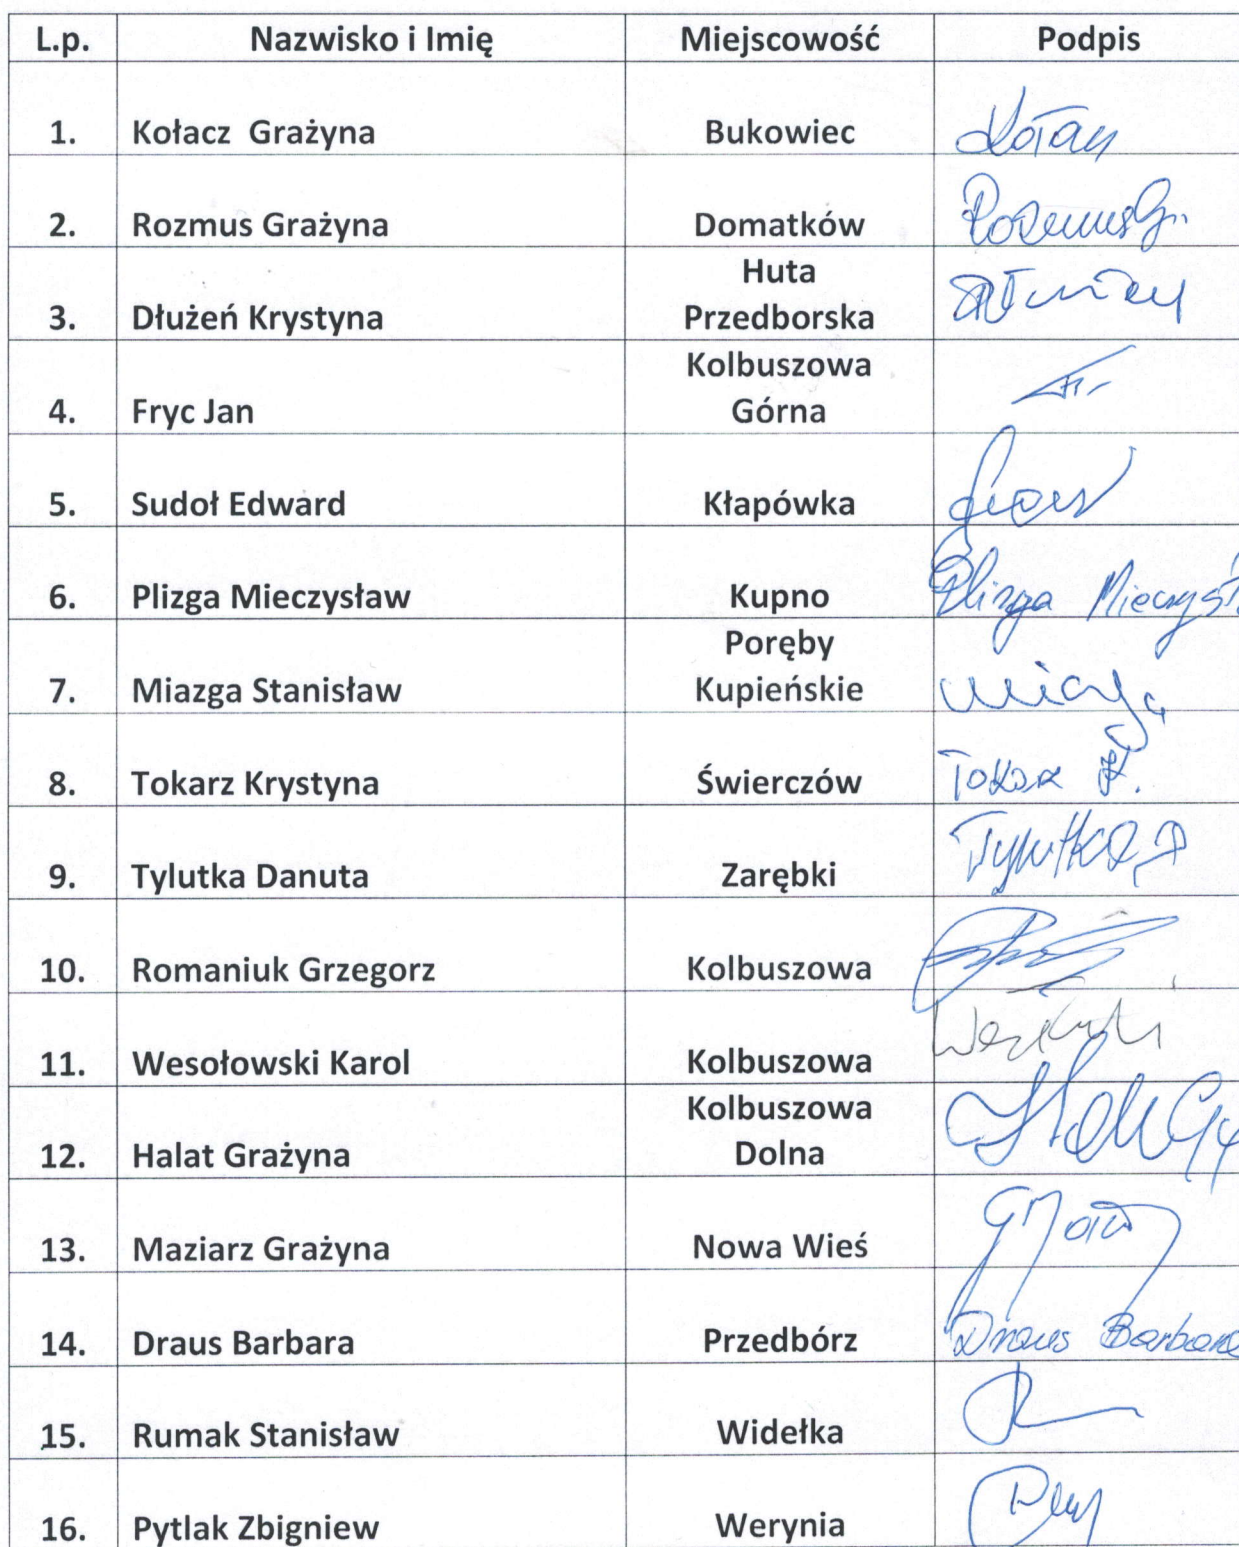 L.p. Nazwisko i Imię Miejscowość Podpis
1. Kołacz Grażyna Bukowiec
2. Rozmus Grażyna Domatków Rozmus G.
Huta
3. Dłużeń Krystyna Przedborska
Kolbuszowa
4. Fryc Jan Górna
5. Sudoł Edward Kłapówka
6. Plizga Mieczysław Kupno Plizga Mieczysł
Poręby
7. Miazga Stanisław Kupieńskie
8. Tokarz Krystyna Świerczów Tokarz K.
9. Tylutka Danuta Zarębki Tylutka D
10. Romaniuk Grzegorz Kolbuszowa
11. Wesołowski Karol Kolbuszowa
Kolbuszowa
12. Halat Grażyna Dolna
13. Maziarz Grażyna Nowa Wieś
14. Draus Barbara Przedbórz Draus Barbara
15. Rumak Stanisław Widełka
16. Pytlak Zbigniew Werynia